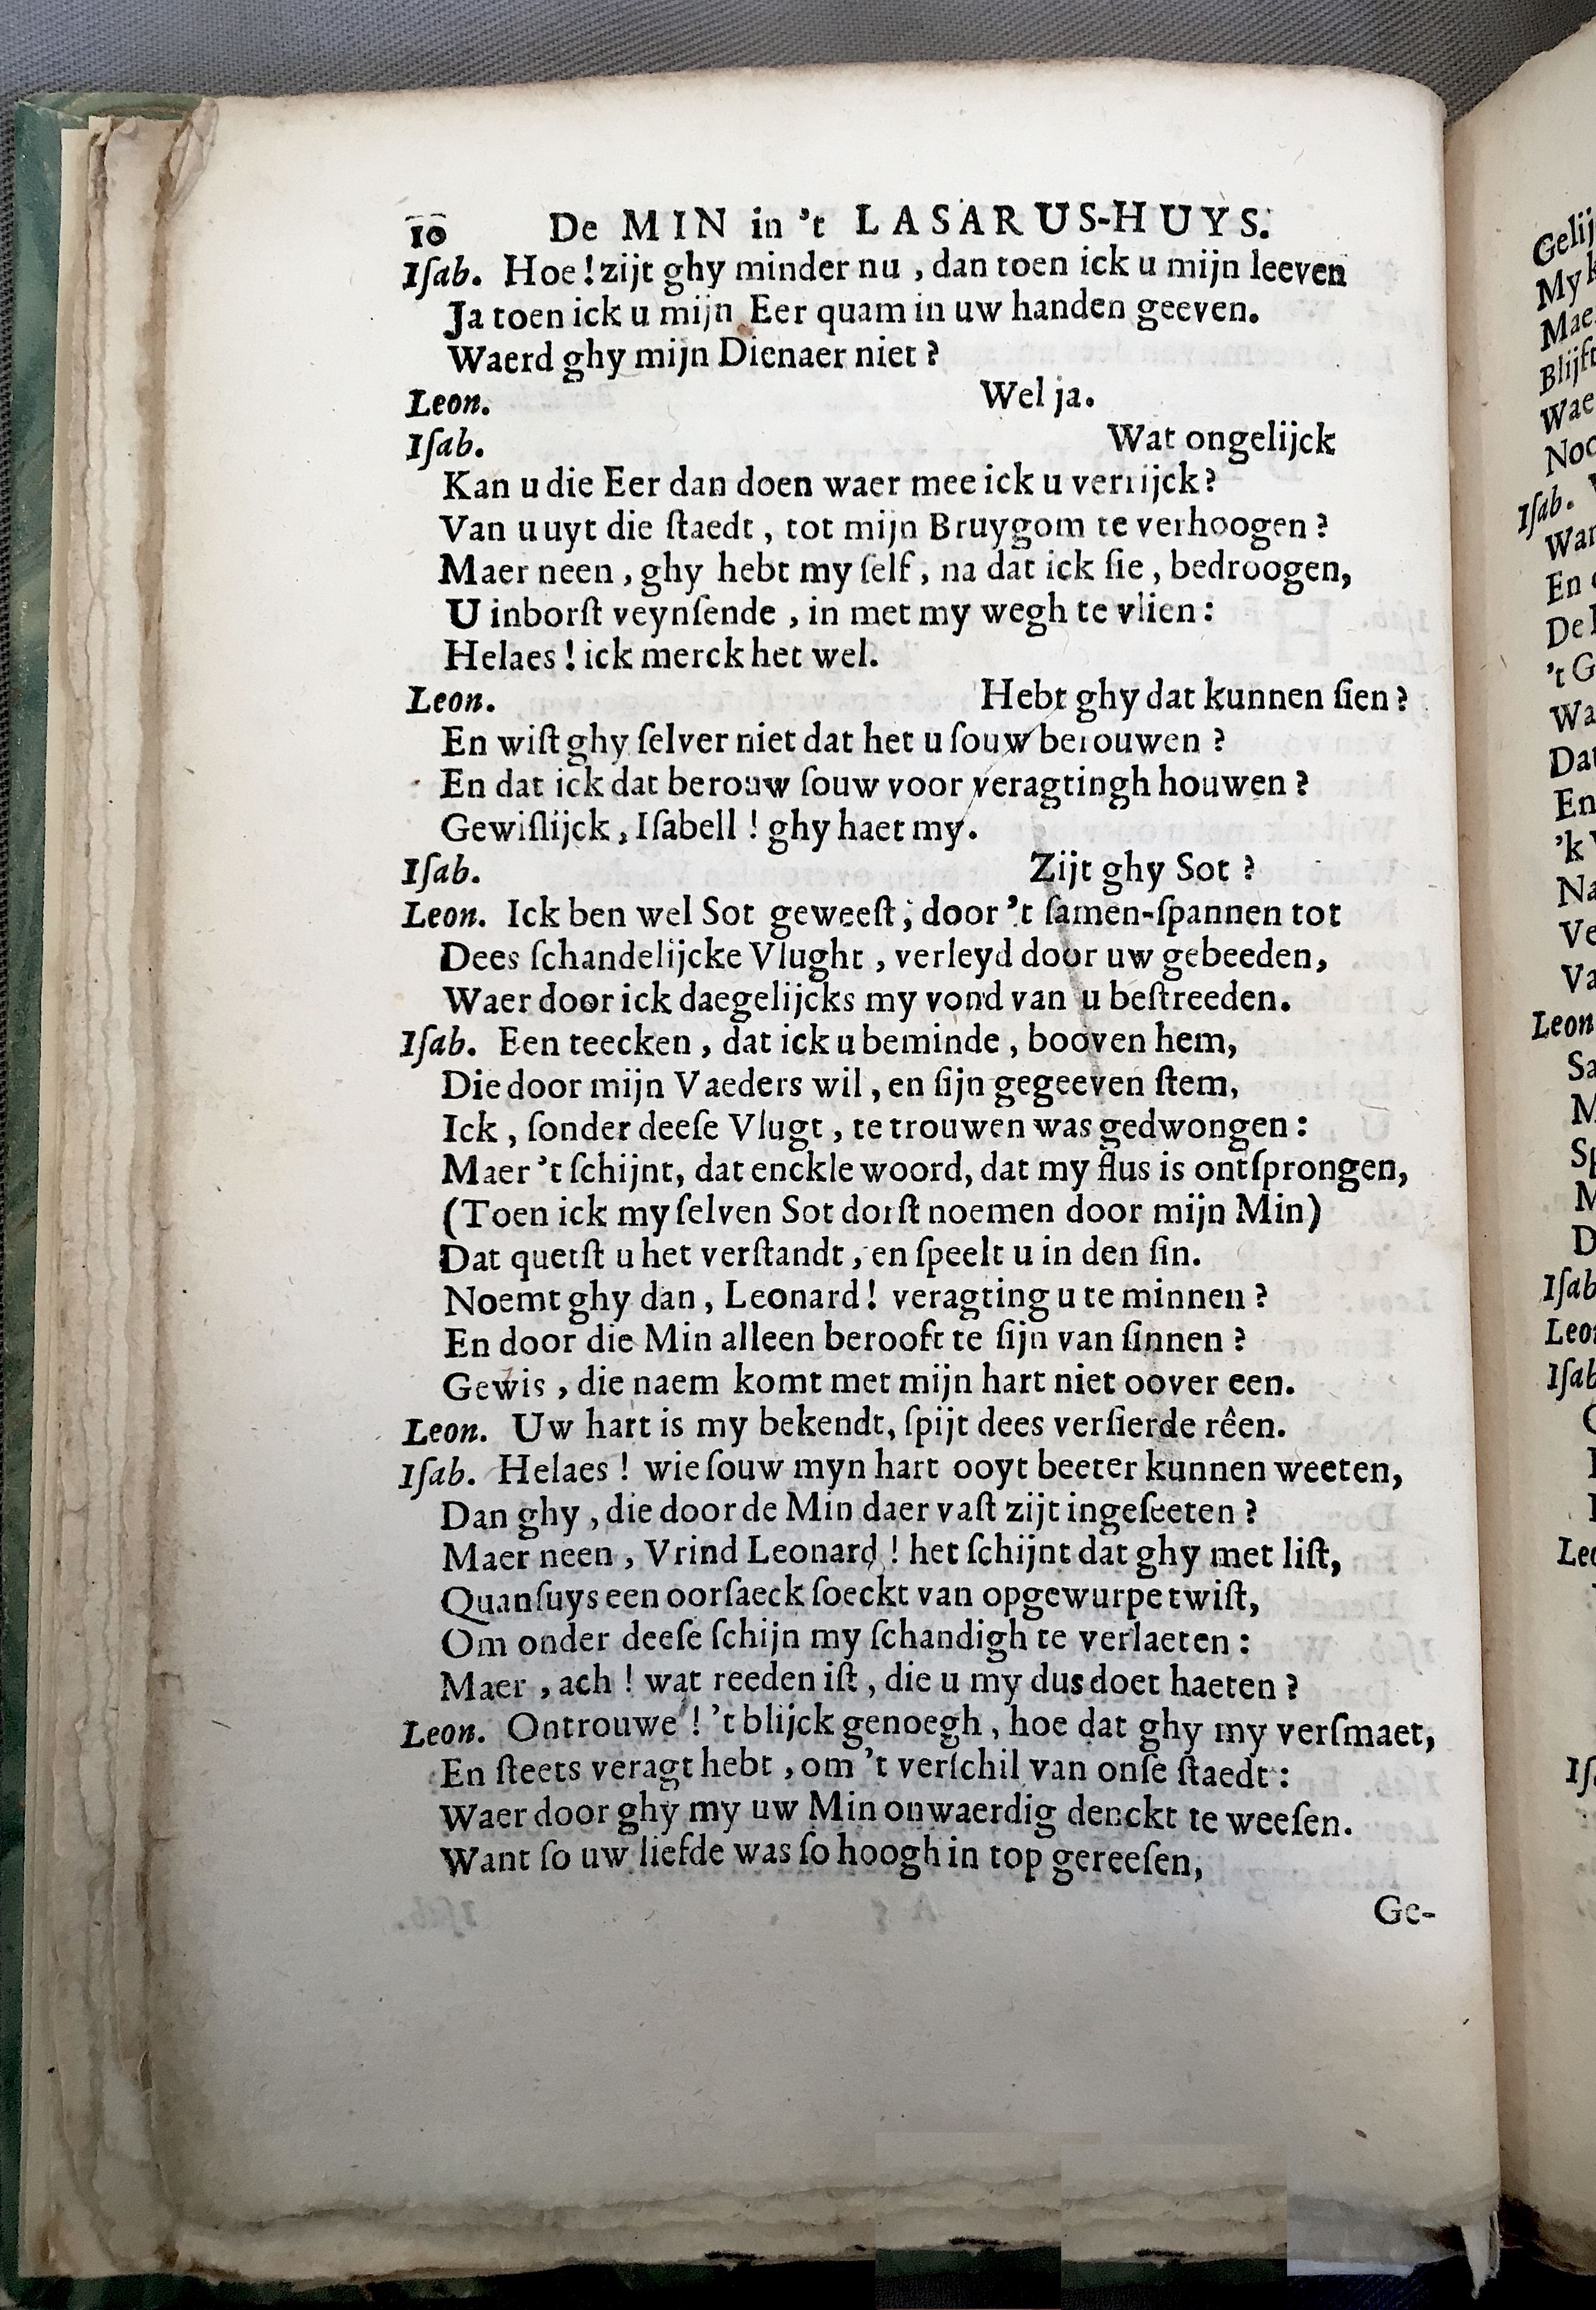 10 De MIN in 't LASARUS-HUYS.
Iſab. Hoe! zijt ghy minder nu, dan toen ick u mijn leeven
Ja toen ick u mijn Eer quam in uw handen geeven.
Waerd ghy mijn Dienaer niet?
Leon. Wel ja.
Iſab. Wat ongelijck
Kan u die Eer dan doen waer mee ick u verrijck?
Van u uyt die ſtaedt, tot mijn Bruygom te verhoogen?
Maer neen, ghy hebt my ſelf, na dat ick ſie, bedroogen,
U inborſt veynſende, in met my wegh te vlien:
Helaes! ick merck het wel.
Leon. Hebt ghy dat kunnen ſien?
En wiſt ghy ſelver niet dat het u ſouw berouwen?
En dat ick dat berouw ſouw voor veragtingh houwen?
Gewiſlijck, Iſabell! ghy haet my.
Iſab. Zijt ghy Sot?
Leon. Ick ben wel Sot geweeſt, door 't ſamen-ſpannen tot
Dees ſchandelijcke Vlught, verleyd door uw gebeeden,
Waer door ick daegelijcks my vond van u beſtreeden.
Iſab. Een teecken, dat ick u beminde, booven hem,
Die door mijn Vaeders wil, en ſijn gegeeven ſtem,
Ick, ſonder deeſe Vlugt, te trouwen was gedwongen:
Maer 't ſchijnt, dat enckle woord, dat my flus is ontſprongen,
(Toen ick my ſelven Sot dorſt noemen door mijn Min)
Dat quetſt u het verſtandt, en ſpeelt u in den ſin.
Noemt ghy dan, Leonard! veragting u te minnen?
En door die Min alleen berooft te ſijn van ſinnen?
Gewis, die naem komt met mijn hart niet oover een.
Leon. Uw hart is my bekendt, ſpijt dees verſierde rêen.
Iſab. Helaes! wie ſouw myn hart ooyt beeter kunnen weeten,
Dan ghy, die door de Min daer vaſt zijt ingeſeeten?
Maer neen, Vrind Leonard! het ſchijnt dat ghy met liſt,
Quanſuys een oorſaeck ſoeckt van opgewurpe twiſt,
Om onder deeſe ſchijn my ſchandigh te verlaeten:
Maer, ach! wat reeden iſt, die u my dus doet haeten?
Leon. Ontrouwe! 't blijck genoegh, hoe dat ghy my verſmaet,
En ſteets veragt hebt, om 't verſchil van onſe ſtaedt:
Waer door ghy my uw Min onwaerdig denckt te weeſen.
Want ſo uw liefde was ſo hoogh in top gereeſen,
Ge-